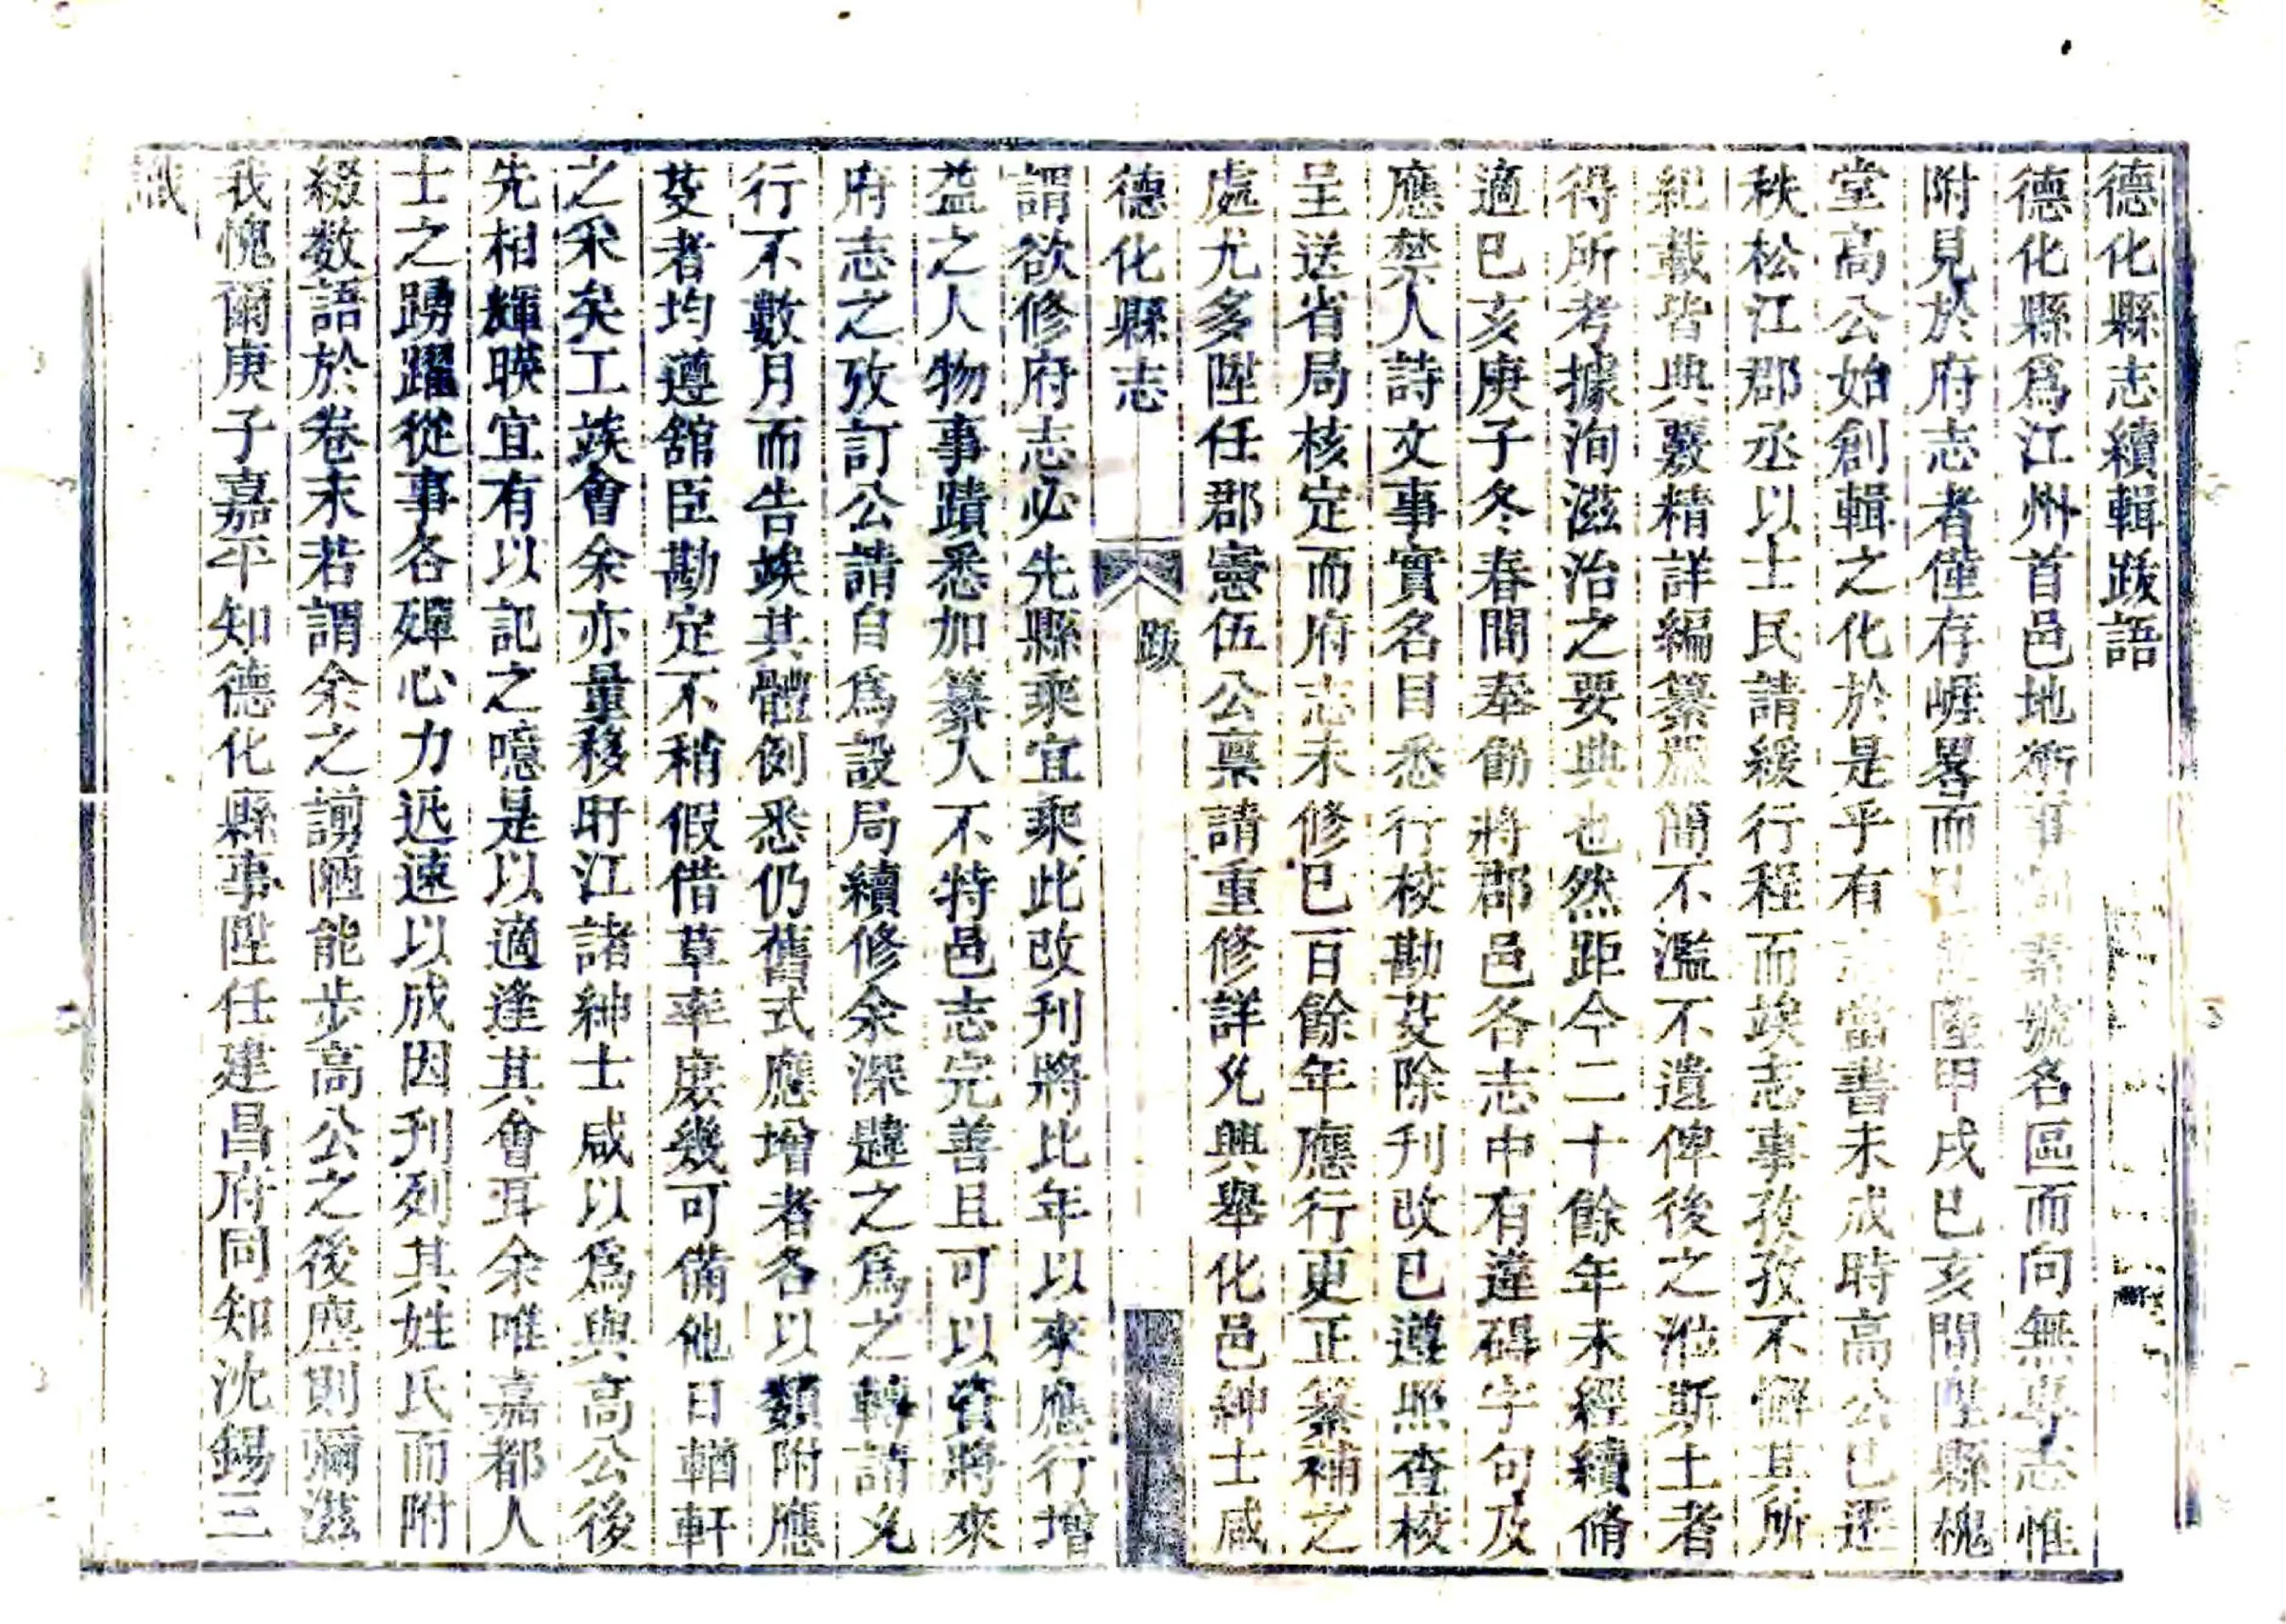 德化縣志續輯跋語
德化縣爲江州首邑地衝事素號名區而向無專志惟
附見於府志者僅存崕畧而陞甲戌巳亥間陞縣槐
堂高公始創輯之化於是乎有當書未成時高公已遷
秩松江郡丞以士民請緩行程而竢志事孜孜不懈其所
紀載皆典覈精詳編纂簡不濫不遺俾後之涖斯土者
得所考據洵滋治之要典也然距今二十餘年未經續脩
適巳亥庚子冬春間奉飭將郡邑各志中有違碍字句及
應禁人詩文事實名目悉行校勘芟除刋改已遵照查校
呈送省局核定而府志未修已百餘年應行更正纂補之
處尤多陞任郡憲伍公稟請重修詳允興舉化邑紳士咸
德化縣志 跋
謂欲修府志必先縣乘宜乘此改刋將比年以來應行增
益之人物事蹟悉加纂入不特邑志完善且可以資將來
府志之攷訂公請自爲設局續修余深韙之爲之轉請允
行不數月而告竢其體例悉仍舊式應增者各以類附應
芟者均遵舘臣勘定不稍假借草率庻幾可備他日輶軒
之采矣工竣會余亦量移盱江諸紳士咸以爲與高公後
先相輝暎宜有以記之噫是以適逢其會耳余唯嘉都人
士之踴躍從事各殫心力迅速以成因刋列其姓氏而附
綴数語於卷末若謂余之謭陋能步高公之後塵則彌滋
我愧爾庚子嘉平知德化縣事陞任建昌府同知沈錫三
識